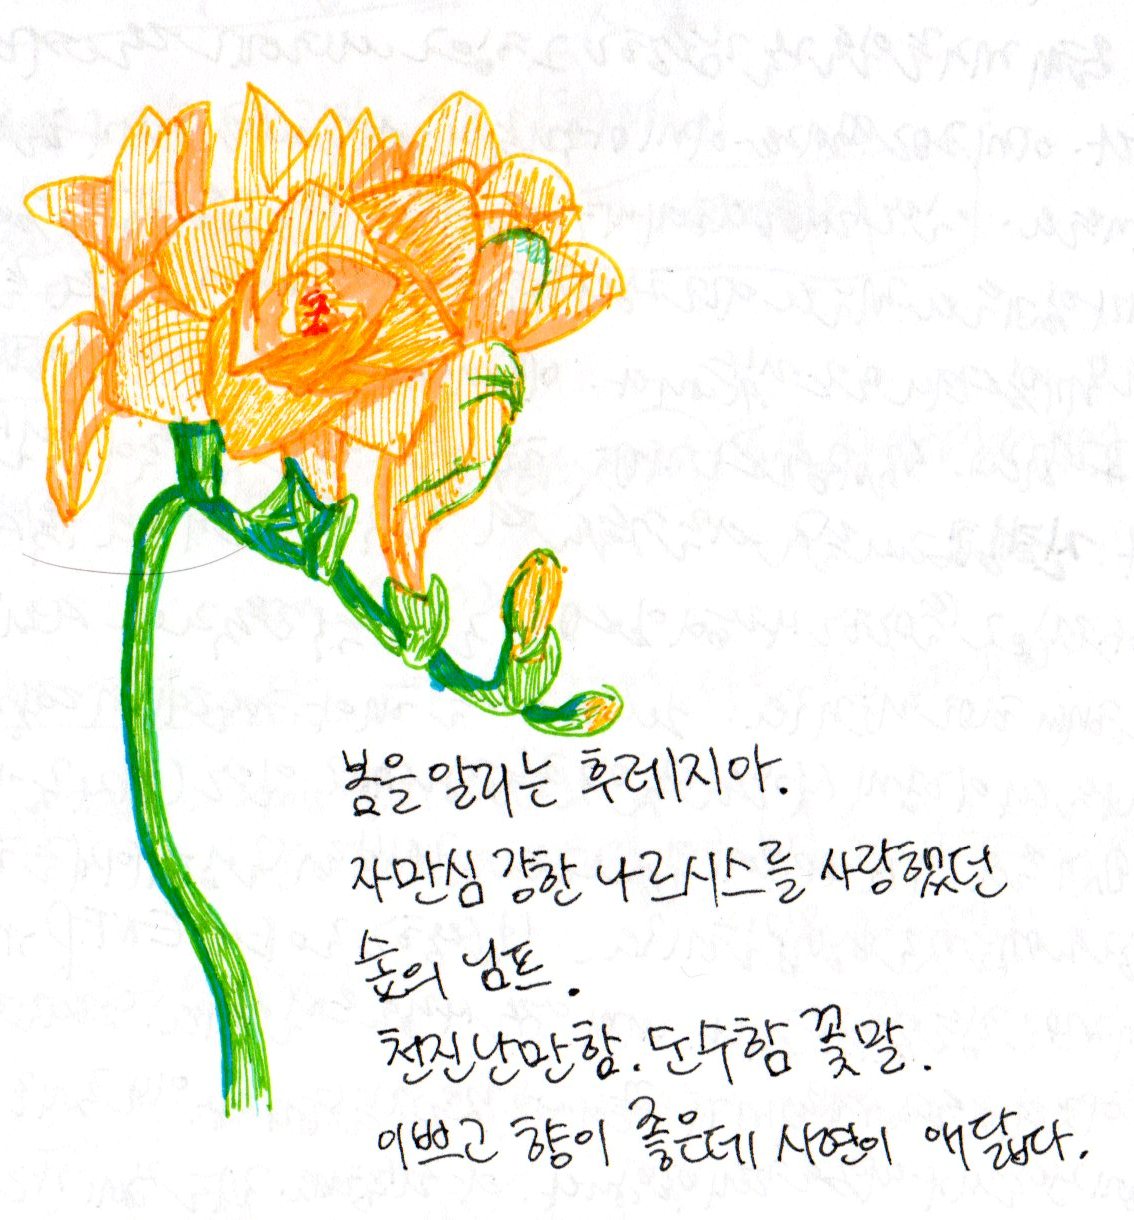 봄을 알리는 후레지아.
자만심 강한 나르시스를 사랑했던
숲의 님프.
천진난만함. 순수함 꽃말.
이쁘고 향이 좋은데 사연이 애닯다.